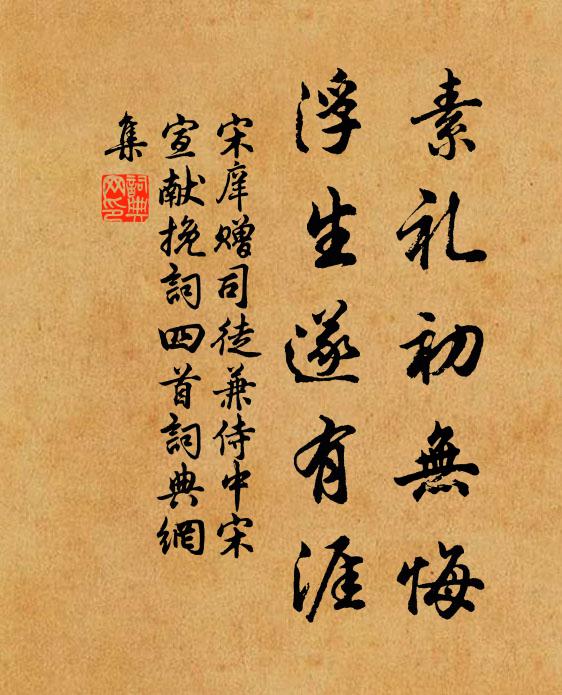 素礼初無悔
浮生遂有涯
宋庠赠司徒兼侍中宋
宣献挽詞四首詞典網
集
詞典
网印